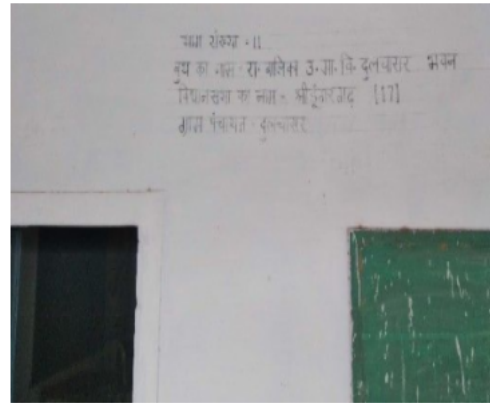 भाग संख्या - 11
बुथ का नाम - रा. बालिका उ. मा. वि. दुलचासर भवन
विधानसभा का नाम - श्रीडूंगरगढ़ (17)
ग्राम पंचायत - दुलचासर